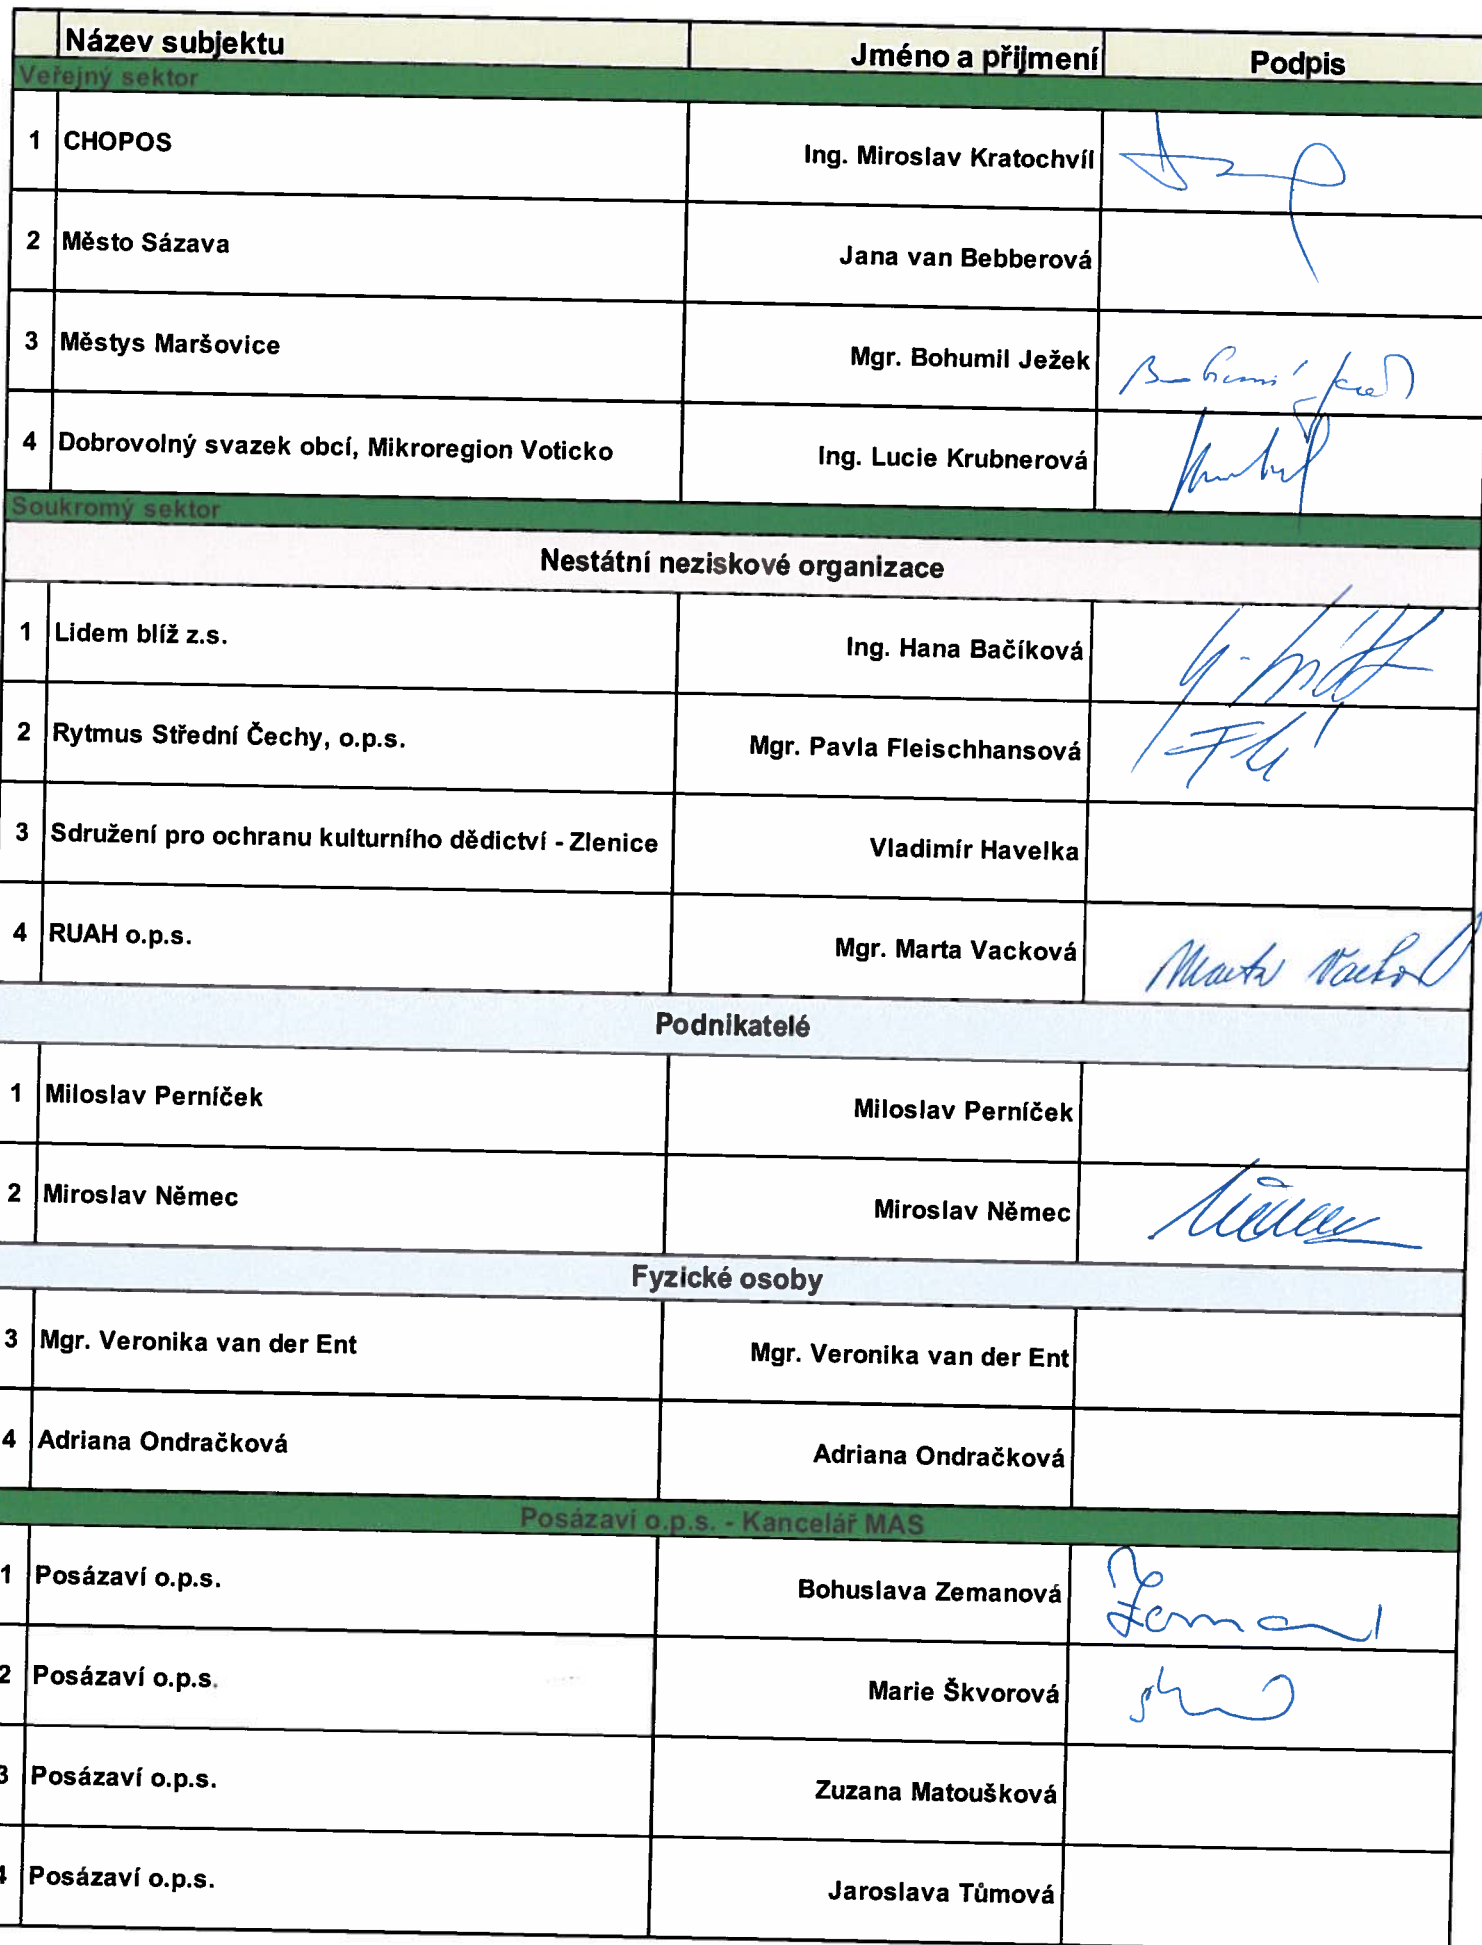 Název subjektu Jméno a přijmení Podpis
Veřejný sektor
1 CHOPOS Ing. Miroslav Kratochvíl
2 Město Sázava Jana van Bebberová
3 Městys Maršovice Mgr. Bohumil Ježek
4 Dobrovolný svazek obcí, Mikroregion Voticko Ing. Lucie Krubnerová
Soukromý sektor
Nestátní neziskové organizace
1 Lidem blíž z.s. Ing. Hana Bačíková
2 Rytmus Střední Čechy, o.p.s. Mgr. Pavla Fleischhansová
3 Sdružení pro ochranu kulturního dědictví - Zlenice Vladimír Havelka
4 RUAH o.p.s. Mgr. Marta Vacková Marta
Podnikatelé
1 Miloslav Perníček Miloslav Perníček
2 Miroslav Němec Miroslav Němec
Fyzické osoby
3 Mgr. Veronika van der Ent Mgr. Veronika van der Ent
4 Adriana Ondračková Adriana Ondračková
Posázaví o.p.s. - Kancelář MAS
1 Posázaví o.p.s. Bohuslava Zemanová
2 Posázaví o.p.s. Marie Škvorová
3 Posázaví o.p.s. Zuzana Matoušková
4 Posázaví o.p.s. Jaroslava Tůmová